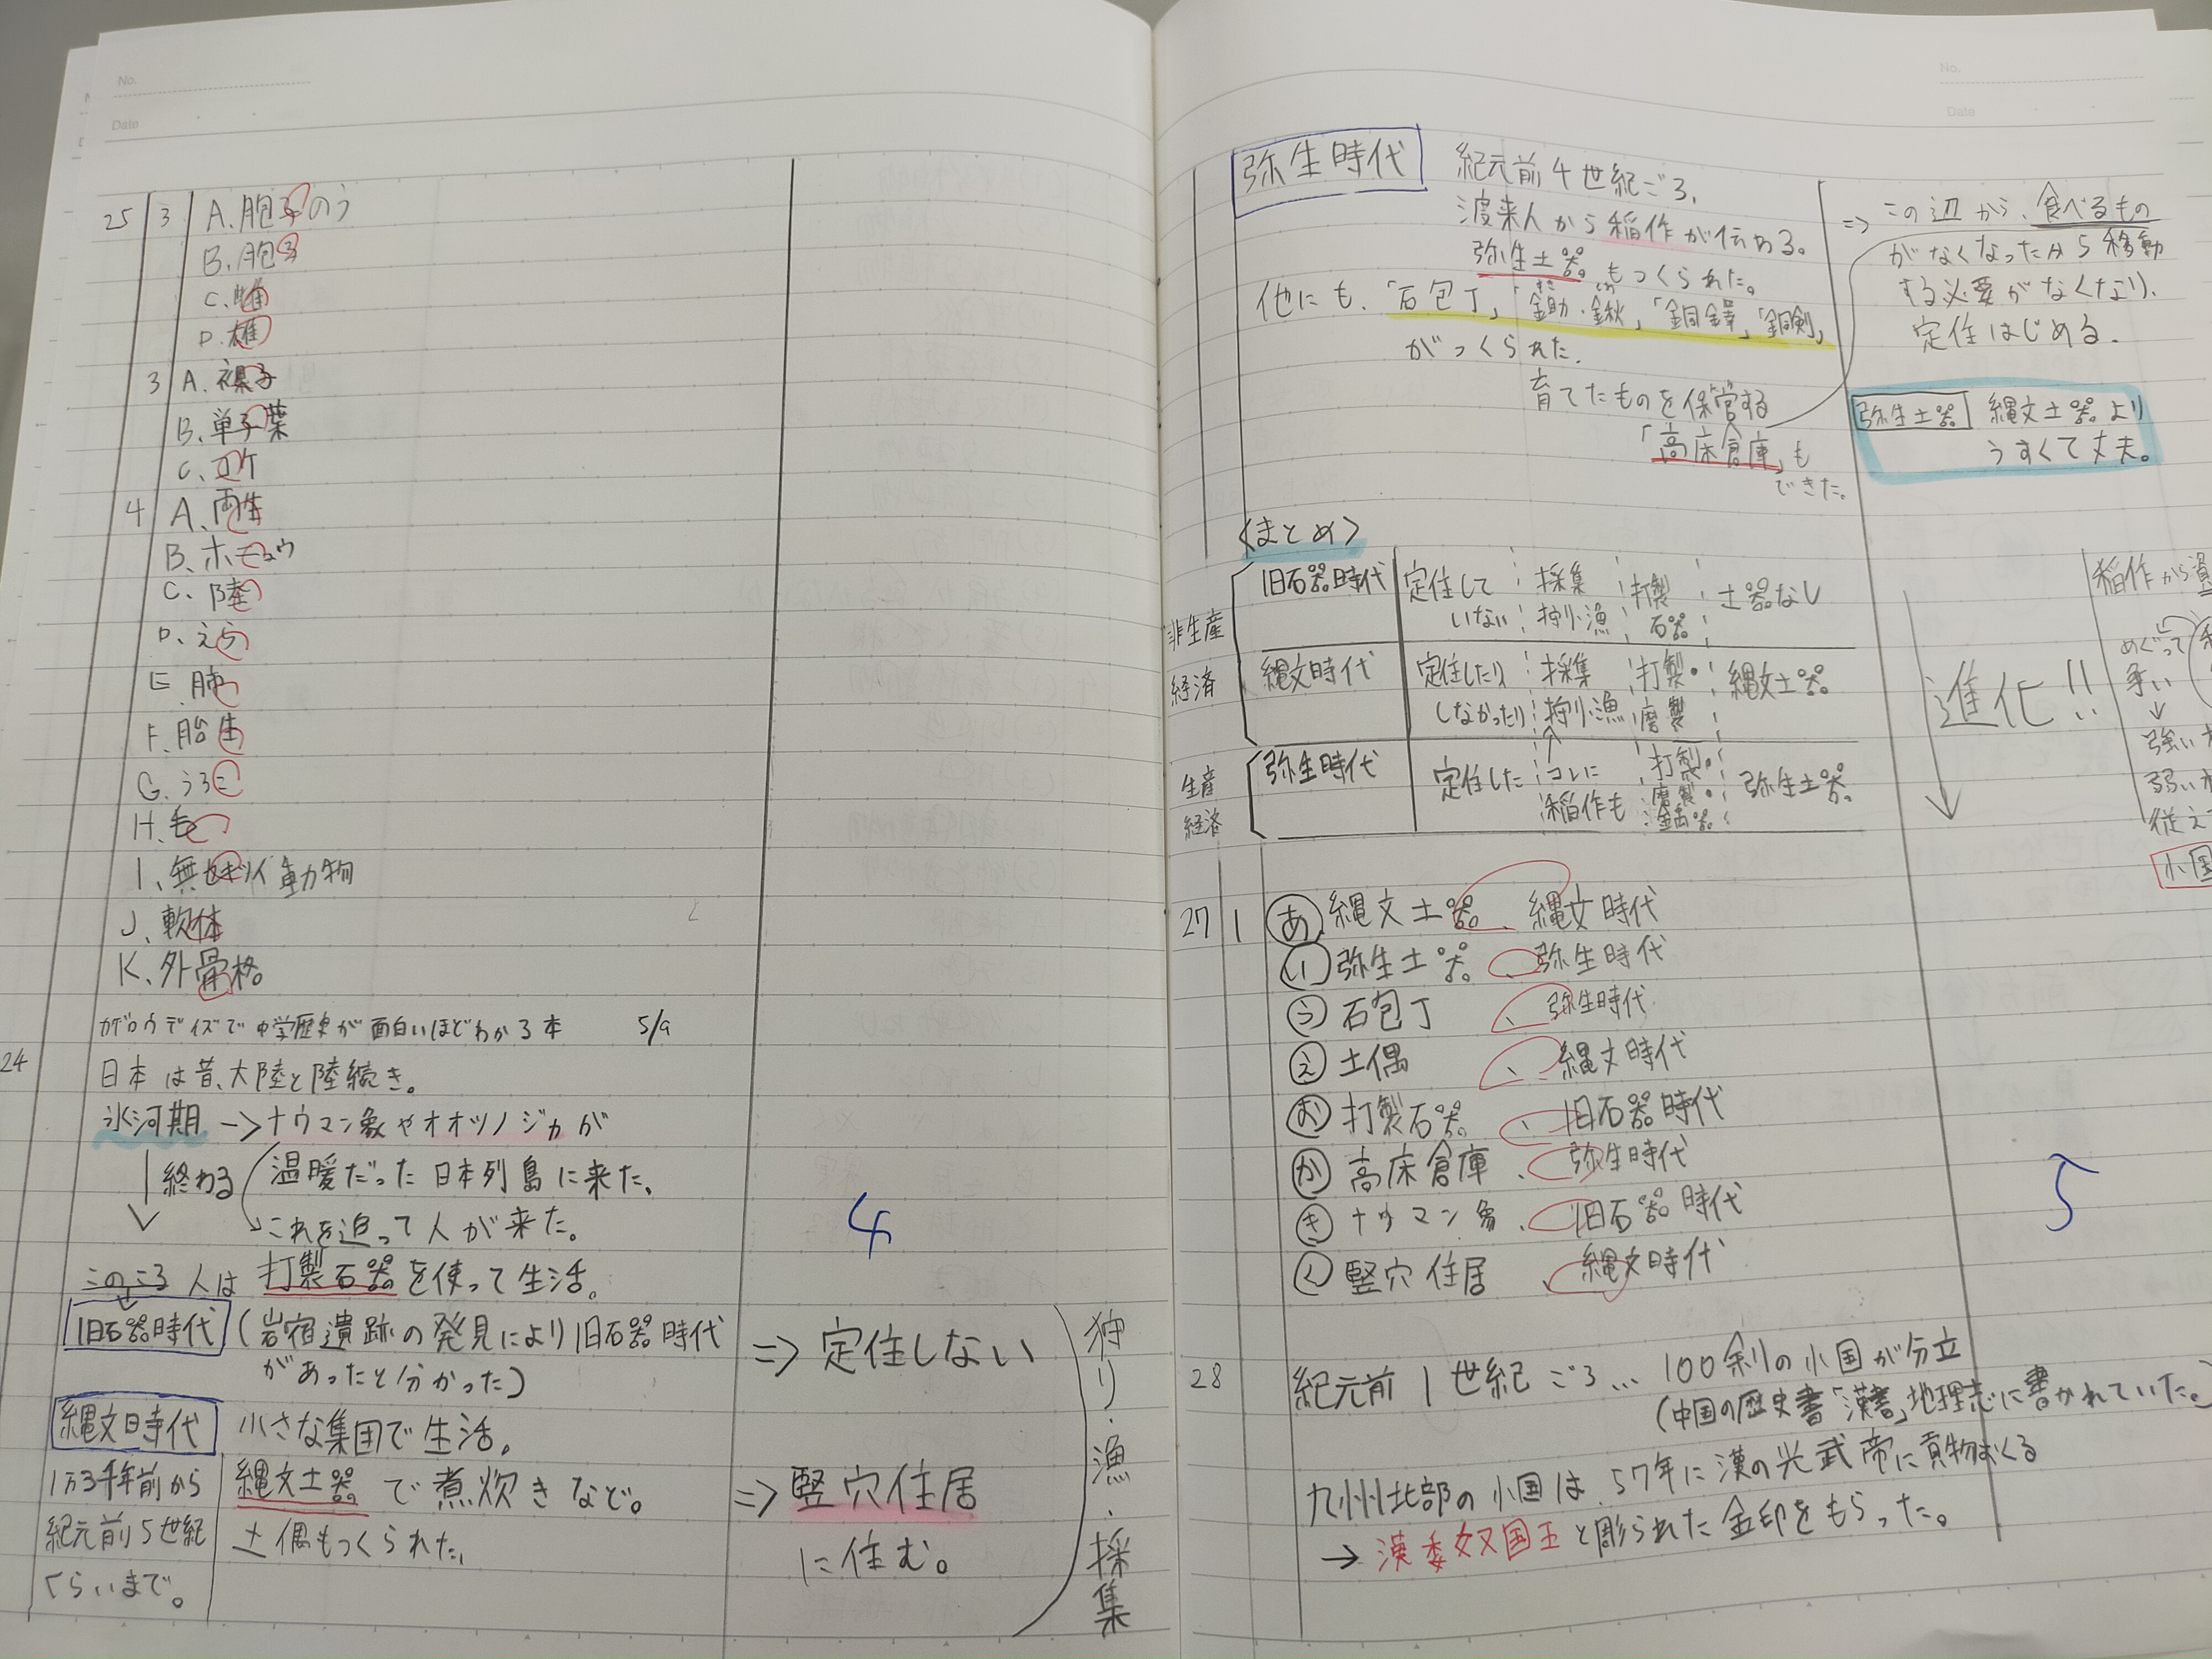 No.
Date
25 3 A. 胞子のう
B. 胞子
C. 雌
D. 雄
3 A. 裸子
B. 単子葉
C. コケ
4 A. 両生
B. ホニュウ
C. 陸
D. えら
E. 肺
F. 胎生
G. うろこ
H. 毛
I. 無セキツイ動物
J. 軟体
K. 外骨格
カゲロウデイズで中学歴史が面白いほどわかる本 5/9
24 日本は昔、大陸と陸続き。
氷河期 → ナウマン象やオオツノジカが
終わる 温暖だった日本列島に来た。
これを追って人が来た。
このころ人は打製石器を使って生活。
旧石器時代 (岩宿遺跡の発見により旧石器時代
があったと分かった)
⇒ 定住しない
縄文時代 小さな集団で生活。
1万3千年前から 縄文土器で煮炊きなど。
紀元前5世紀 土偶もつくられた。
くらいまで。
⇒ 竪穴住居
に住む。
狩り・漁・採集
4
No.
Date
弥生時代 紀元前4世紀ごろ、
渡来人から稲作が伝わる。
弥生土器もつくられた。
他にも、「石包丁」「鋤・鍬」「銅鐸」「銅剣」
すき くわ
がつくられた。
育てたものを保管する
「高床倉庫」も
できた。
⇒ この辺から、食べるもの
がなくなったから移動
する必要がなくなり、
定住はじめる。
弥生土器 縄文土器より
うすくて丈夫。
<まとめ>
非生産
経済
旧石器時代 定住して 採集 打製 土器なし
いない 狩り・漁 石器
縄文時代 定住したり 採集 打製・ 縄文土器
しなかったり 狩り・漁 磨製
生産
経済
弥生時代 定住した コレに 打製・ 弥生土器
稲作も 磨製・
金属器
進化!!
稲作から
めぐって
争い
↓
強い
弱い
従え
小国
27 1 あ 縄文土器、縄文時代
い 弥生土器、弥生時代
う 石包丁、弥生時代
え 土偶、縄文時代
お 打製石器、旧石器時代
か 高床倉庫、弥生時代
き ナウマン象、旧石器時代
く 竪穴住居、縄文時代
5
28 紀元前1世紀ごろ… 100余りの小国が分立
(中国の歴史書「漢書」地理志に書かれていた。)
九州北部の小国は、57年に漢の光武帝に貢物おくる
→ 漢委奴国王と彫られた金印をもらった。